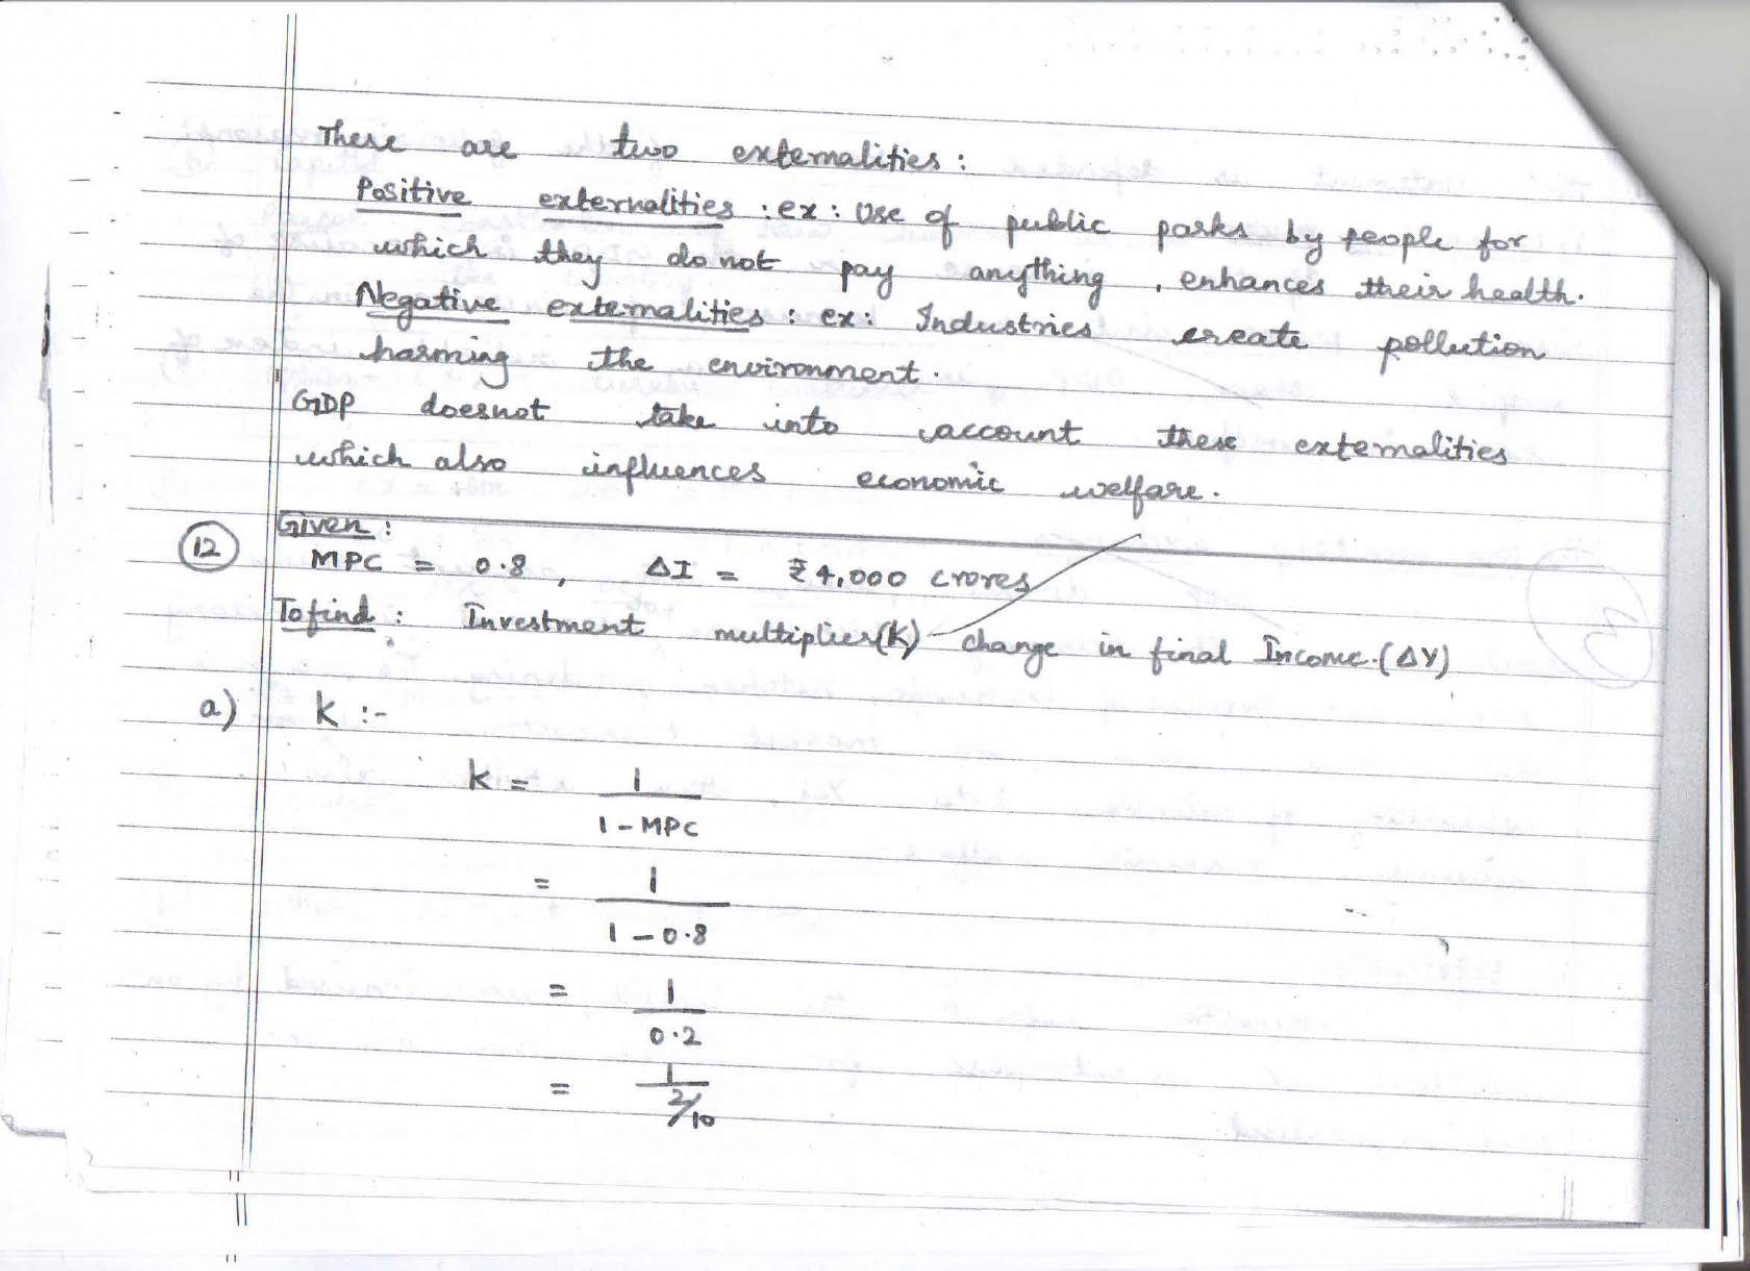 There are two externalities :
Positive externalities : ex : Use of public parks by people for
which they do not pay anything , enhances their health.
Negative externalities : ex : Industries create pollution
harming the environment .
GDP doesnot take into account these externalities
which also influences economic welfare .
Given :
12 MPC = 0.8 , ΔI = ₹4,000 crores
To find : Investment multiplier (K) change in final Income. (ΔY)
a) K :-
K = 1 / 1 - MPC
= 1 / 1 - 0.8
= 1 / 0.2
= 1 / 2/10